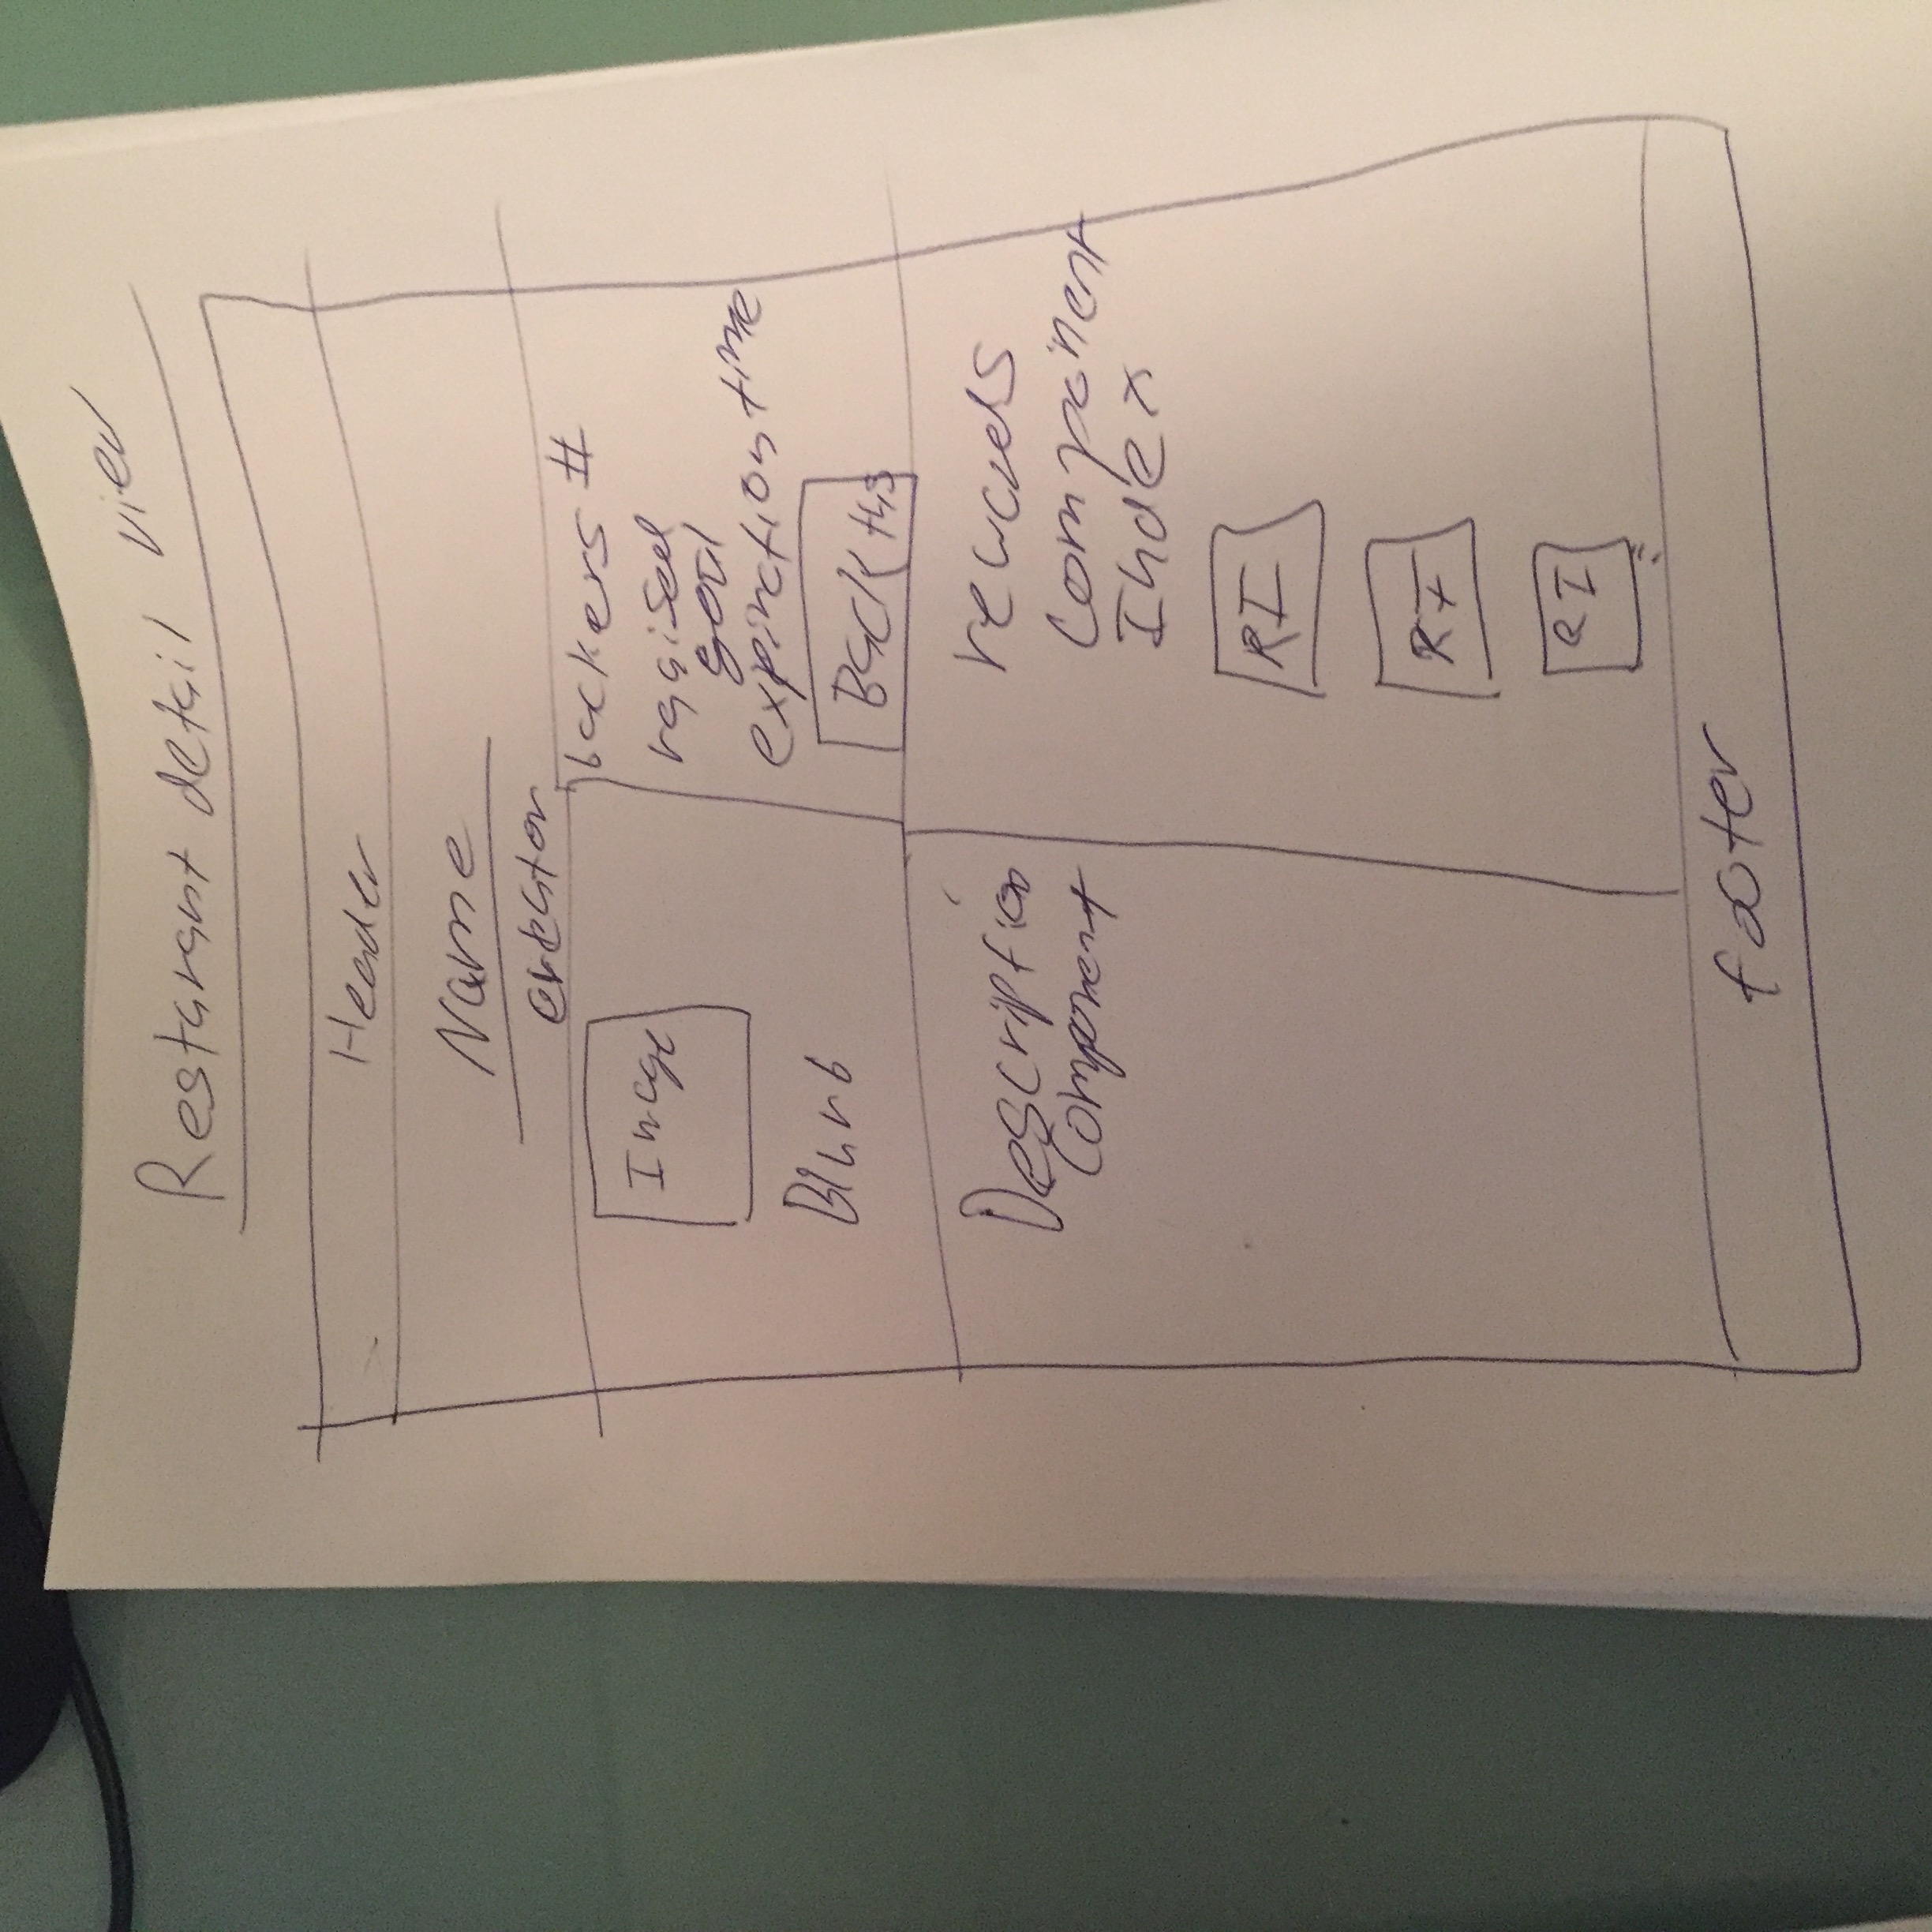 Restarant detail view
Header
Name
creator
Image
Blurb
backers #
raaised
goal
expiration time
Back this
Description
Component
rewards
component
Index
RI
RI
RI
footer